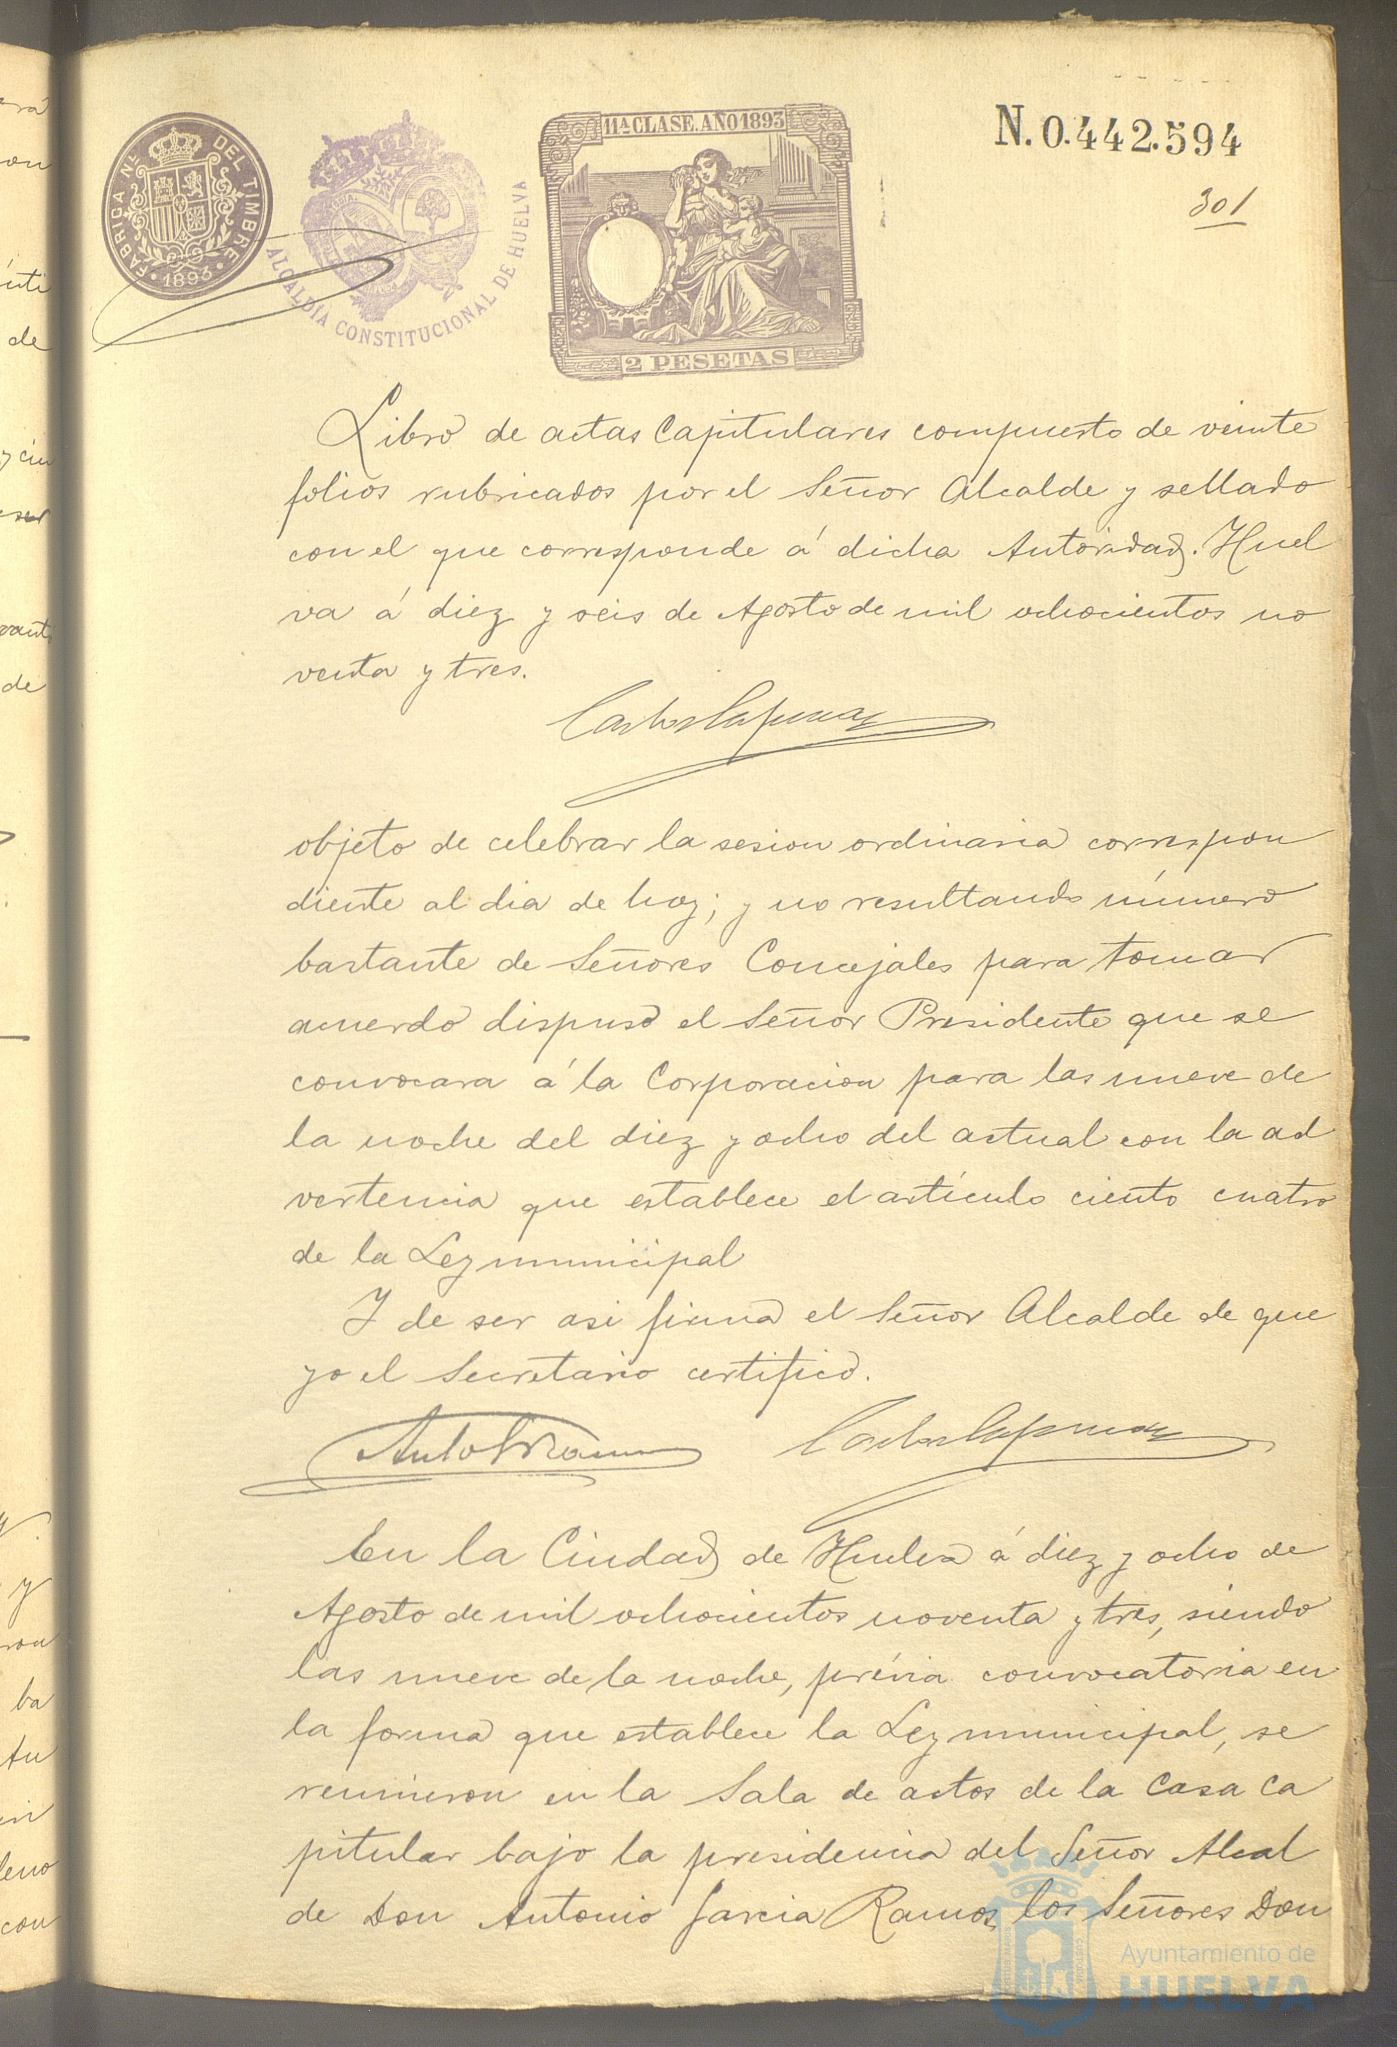 FABRICA NL. DEL TIMBRE
1893
ALCALDÍA CONSTITUCIONAL DE HUELVA
11ª CLASE. AÑO 1893
2 PESETAS
N. 0.442.594
301
Libro de actas Capitulares compuesto de veinte
folios rubricados por el Señor Alcalde y sellado
con el que corresponde á dicha Autoridad. Huel
va á diez y seis de Agosto de mil ochocientos no
venta y tres.
objeto de celebrar la sesion ordinaria correspon
diente al dia de hoy; y no resultando número
bastante de Señores Concejales para tomar
acuerdo dispuso el Señor Presidente que se
convocara á la Corporacion para las nueve de
la noche del diez y ocho del actual con la ad
vertencia que establece el artículo ciento cuatro
de la Ley municipal
Y de ser asi firma el Señor Alcalde de que
yo el Secretario certifico.
En la Ciudad de Huelva á diez y ocho de
Agosto de mil ochocientos noventa y tres, siendo
las nueve de la noche, prévia convocatoria en
la forma que establece la Ley municipal, se
reunieron en la Sala de actos de la Casa Ca
pitular bajo la presidencia del Señor Alcal
de Don Antonio Garcia Ramos, los Señores Don
Ayuntamiento de
HUELVA